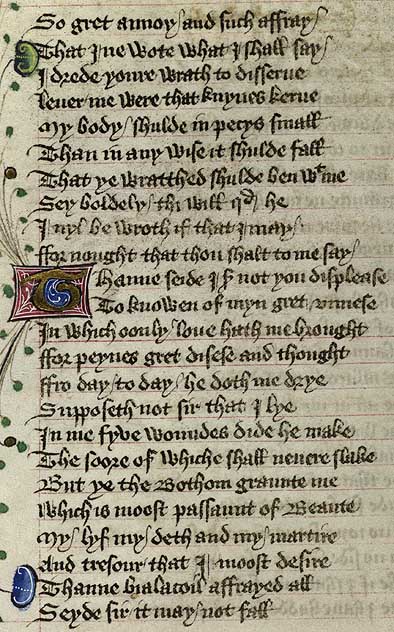 So gret annoy / and such affray /
That I ne wote what I shall say /
I drede youre wrath to disserue
leuer me were that knyues kerue
My body / shulde in pecys small
Than in any wise it shulde fall
That ye wratthed shulde ben wt me
Sey boldely / thi will qd he
I nyl be wroth if that I may /
ffor nought that thou shalt to me say /
Thanne seide I sir not you displease
To knowen of myn gret vnnese
In which oonly loue hath me brought
ffor peynes gret disese and thought
ffro day / to day / he doth me drye
Supposeth not sir that I lye
In me fyve woundes dide he make
The soore of whiche shall neuere slake
But ye the Bothom graunte me
Which is moost passaunt of Beaute
My / lyf my / deth and my / martire
And tresour that I moost desire
Thanne Bialacoil affrayed all
Seyde sir it may / not fall